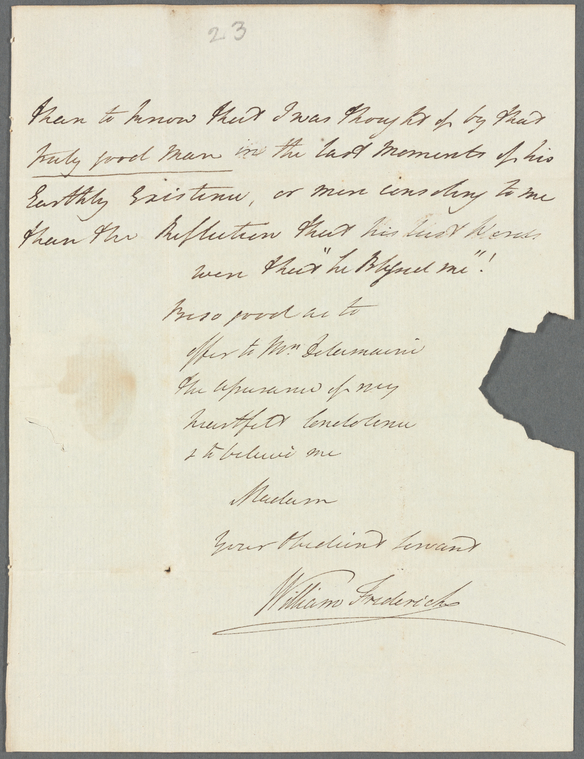 23
than to know that I was thought of by that
truly good man in the last moments of his
Earthly Existence, or more consoling to me
than the Reflection that his last Words
were that "he Blessed me"!
Be so good as to
offer to Mrs
the assurance of my
heartfelt Condolence
& to believe me
Madam
Your Obedient Servant
William Frederick